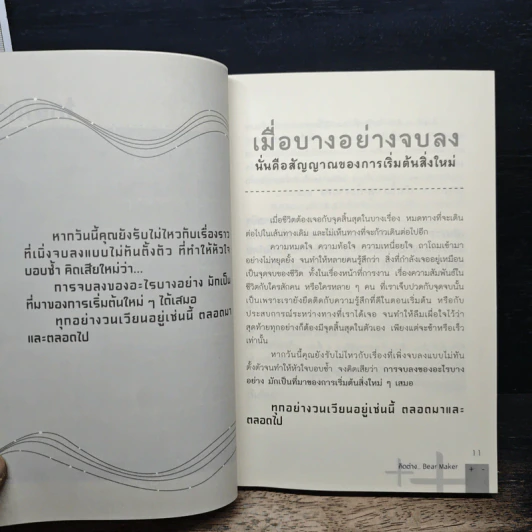 หากวันนี้คุณยังรับไม่ไหวกับเรื่องราว
ที่เพิ่งจบลงแบบไม่ทันตั้งตัว ที่ทำให้หัวใจ
บอบช้ำ คิดเสียใหม่ว่า...
การจบลงของอะไรบางอย่าง มักเป็น
ที่มาของการเริ่มต้นใหม่ ๆ ได้เสมอ
ทุกอย่างวนเวียนอยู่เช่นนี้ ตลอดมา
และตลอดไป
เมื่อบางอย่างจบลง
นั่นคือสัญญาณของการเริ่มต้นสิ่งใหม่
เมื่อชีวิตต้องเจอกับจุดสิ้นสุดในบางเรื่อง หมดทางที่จะเดิน
ต่อไปในเส้นทางเดิม และไม่เห็นทางที่จะก้าวเดินต่อไปอีก
ความหมดใจ ความท้อใจ ความเหนื่อยใจ ถาโถมเข้ามา
อย่างไม่หยุดยั้ง จนทำให้หลายคนรู้สึกว่า สิ่งที่กำลังเจออยู่เหมือน
เป็นจุดจบของชีวิต ทั้งในเรื่องหน้าที่การงาน เรื่องความสัมพันธ์ใน
ชีวิตกับใครสักคน หรือใครหลาย ๆ คน ที่เราเจ็บปวดกับจุดจบนั้น
เป็นเพราะเรายังยึดติดกับความรู้สึกที่ดีในตอนเริ่มต้น หรือกับ
ประสบการณ์ระหว่างทางที่เราได้เจอ จนทำให้ลืมเผื่อใจไว้ว่า
สุดท้ายทุกอย่างก็ต้องมีจุดสิ้นสุดในตัวเอง เพียงแต่จะช้าหรือเร็ว
เท่านั้น
หากวันนี้คุณยังรับไม่ไหวกับเรื่องที่เพิ่งจบลงแบบไม่ทัน
ตั้งตัวจนทำให้หัวใจบอบช้ำ จงคิดเสียว่า การจบลงของอะไรบาง
อย่าง มักเป็นที่มาของการเริ่มต้นสิ่งใหม่ ๆ เสมอ
ทุกอย่างวนเวียนอยู่เช่นนี้ ตลอดมาและ
ตลอดไป
11
คิดต่าง.. Bear Maker